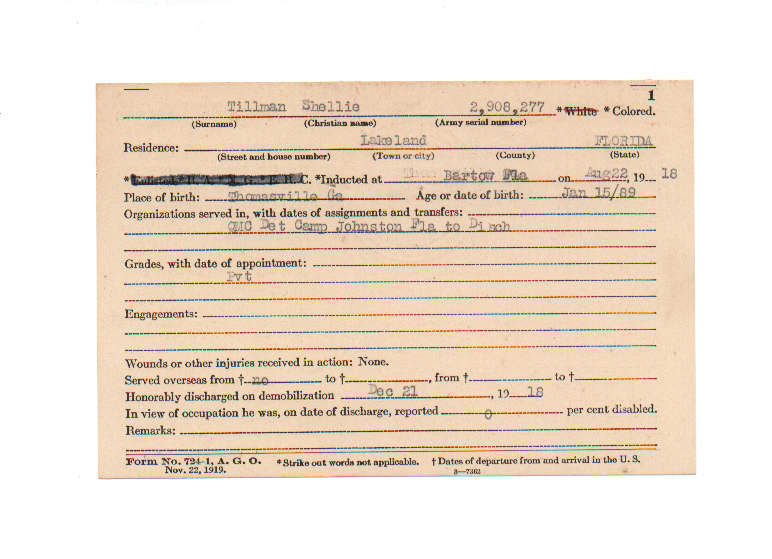 1
Tillman Shellie 2,908,277 * White * Colored.
(Surname) (Christian name) (Army serial number)
Residence: Lakeland FLORIDA
(Street and house number) (Town or city) (County) (State)
* C. *Inducted at Bartow Fla on Aug22, 19 18
Place of birth: Thomasville Ga Age or date of birth: Jan 15/89
Organizations served in, with dates of assignments and transfers:
QMC Det Camp Johnston Fla to Disch
Grades, with date of appointment:
Pvt
Engagements:
Wounds or other injuries received in action: None.
Served overseas from † no to †, from † to †
Honorably discharged on demobilization Dec 21, 19 18
In view of occupation he was, on date of discharge, reported 0 per cent disabled.
Remarks:
Form No. 724-1, A. G. O. *Strike out words not applicable. † Dates of departure from and arrival in the U. S.
Nov. 22, 1919. 3—7362